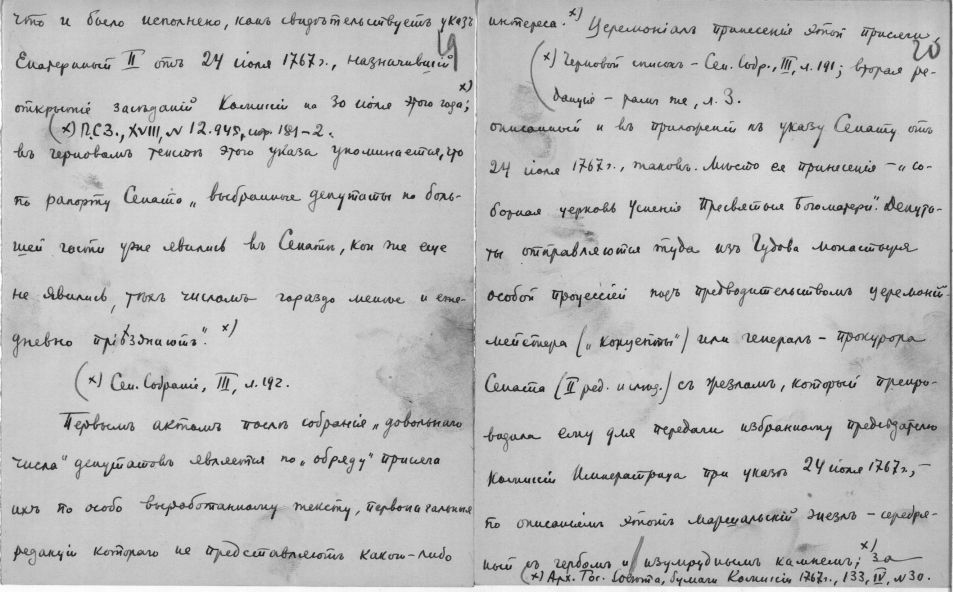 что и было исполнено, какъ свидѣтельствуетъ указъ
19
Екатерины II отъ 24 iюля 1767 г., назначившiй
открытiе засѣданiй Комисiи на 30 iюля этого года; х)
(х) П.С.З., XVIII, N 12.948, стр. 181-2.
въ черновомъ текстѣ этого указа упоминается, что
по рапорту Сената „выбранные депутаты по боль-
шей части уже явились въ Сенатъ, кои же еще
не явились, тѣхъ числомъ гораздо менѣе и еже-
дневно прiѣзжаютъ". х)
(х) Сен. Собранiе, III, л. 192.
Первымъ актомъ послѣ собранiя „довольнаго
числа" депутатовъ является по „обряду" присяга
ихъ по особо выработанному тексту, первоначальныя
редакцiи котораго не представляютъ какого-либо
интереса. х) Церемонiалъ принесенiя этой присяги,
20
(х) Черновой списокъ - Сен. Собр., III, л. 191; вторая ре-
дакцiя - тамъ же, л. 3.
описанный и въ приложенiи къ указу Сенату отъ
24 iюля 1767 г., таковъ. Мѣсто ея принесенiя - „со-
борная церковь Успенiя Пресвятыя Богоматери". Депута-
ты отправляются туда изъ Чудова монастыря
особой процессiей подъ предводительствомъ церемонiй-
мейстера („концепты") или генералъ-прокурора
Сената (II ред. и слѣд.) съ жезломъ, который препро-
водила ему для передачи избранному предсѣдателю
Комисiи Императрица при указѣ 24 iюля 1767 г., -
по описанiямъ этотъ маршальскiй жезлъ - серебря-
ный съ гербомъ и изумруднымъ камнемъ; х) за
(х) Арх. Гос. Совѣта, бумаги Комисiи 1767 г., 133, IV, N 30.